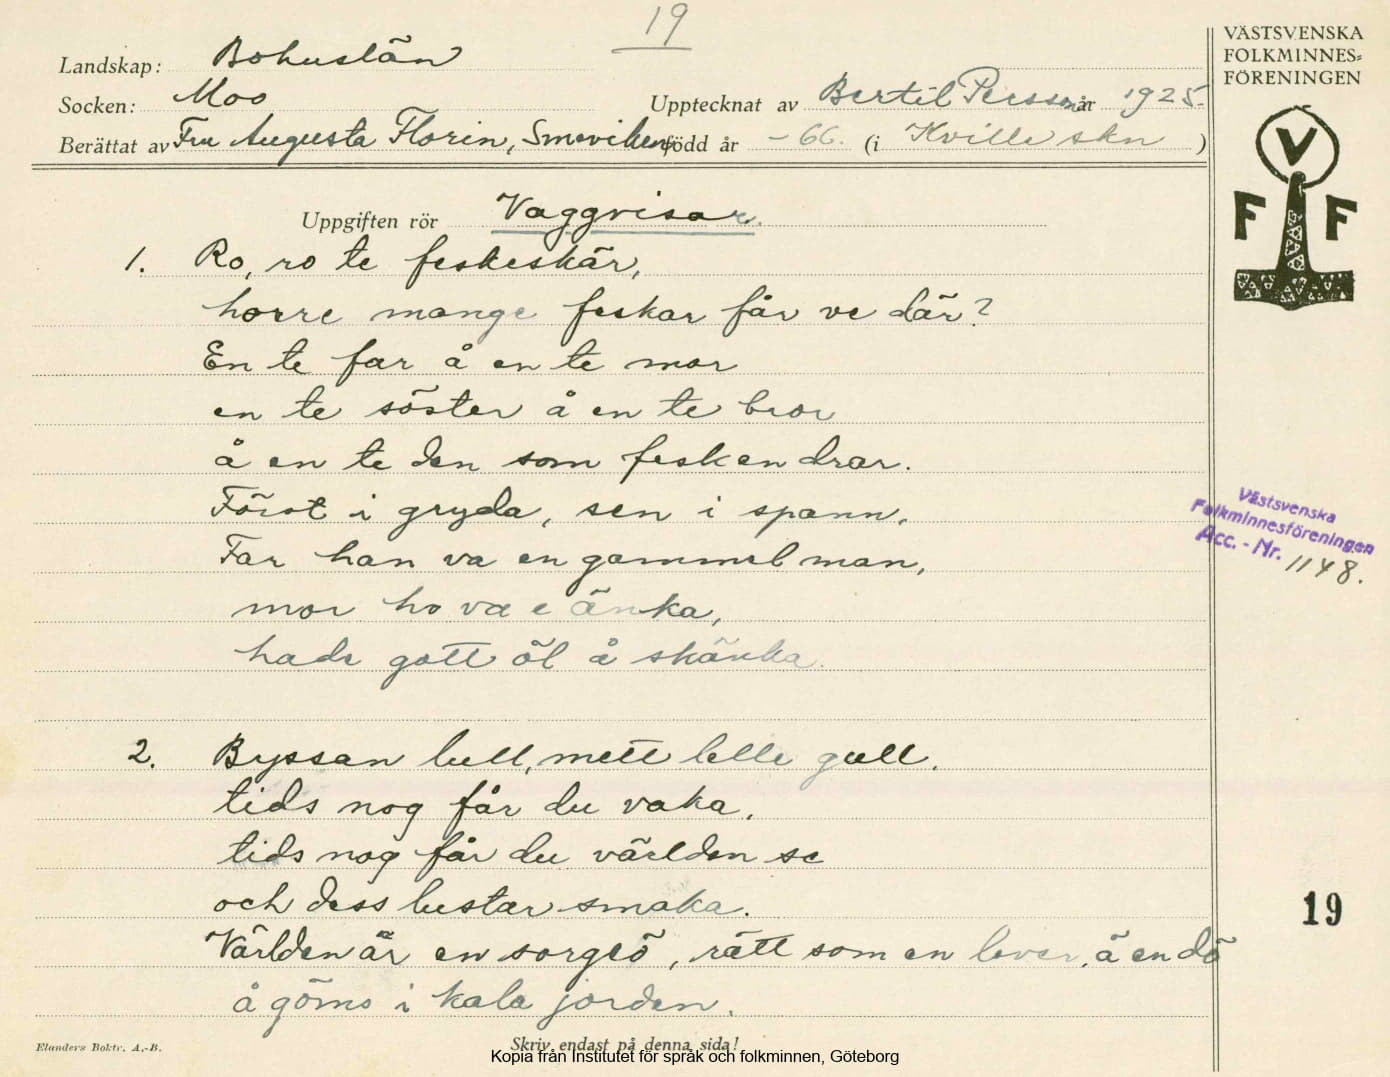 19
VÄSTSVENSKA
FOLKMINNES=
FÖRENINGEN
Landskap: Bohuslän
Socken: Moo
Upptecknat av Bertil Persson år 1925.
Berättat av Fru Augusta Florin, Smeviken född år -66. (i Kville skn )
V
F F
Uppgiften rör Vaggvisor.
1. Ro, ro te feskeskär,
horre mange feskar får ve där?
En te far å en te mor
en te söster å en te bror
å en te den som fesken drar.
Först i gryda, sen i spann,
Far han va en gammel man,
mor ho va e änka,
hade gott öl å skänka.
Västsvenska
Folkminnesföreningen
Acc. - Nr. 1148.
2. Byssan lull, mett lelle gull,
tids nog får du vaka,
tids nog får du världen se
och dess lustar smaka.
Världen är en sorgeö, rätt som en lever, ä en dö
å göms i kala jorden.
19
Elanders Boktr. A.-B.
Skriv endast på denna sida!
Kopia från Institutet för språk och folkminnen, Göteborg